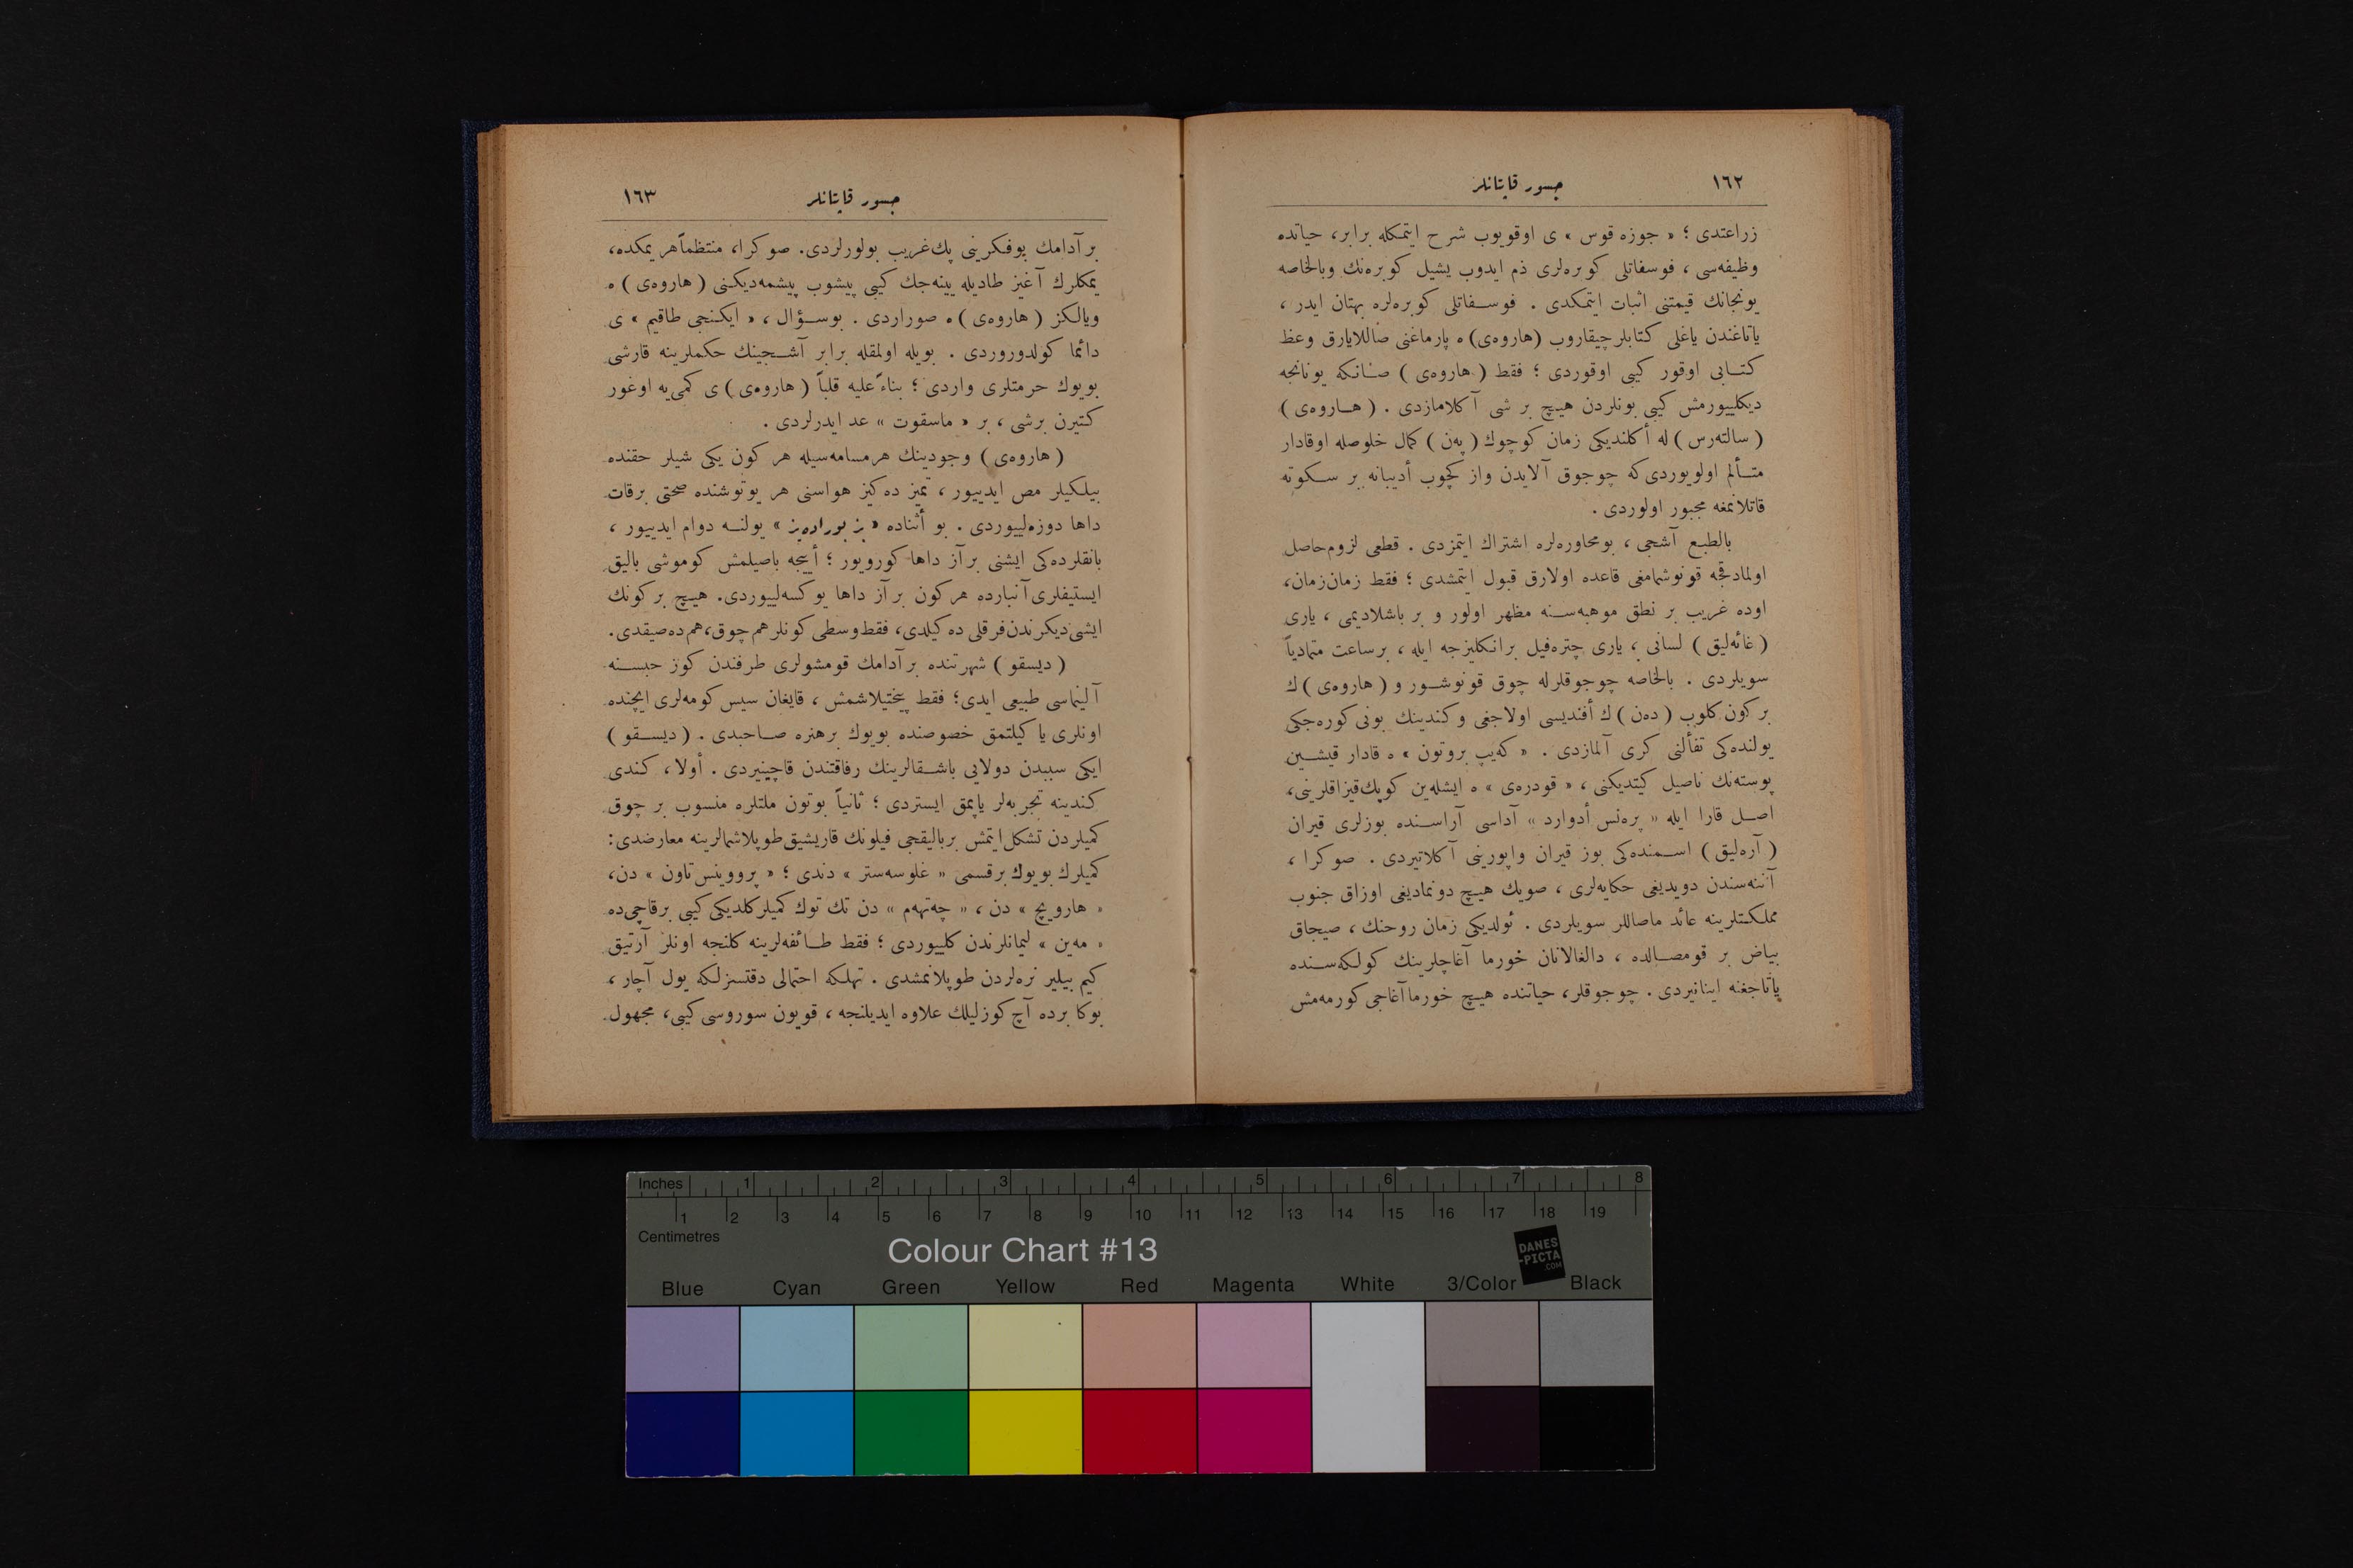 ١٦٢
جسور قاپتانلر
زراعتدی ؛ « جوزه قوس » ی اوقویوب شرح ایتمکله برابر، حیاتده
وظیفه‌سی ، فوسفاتلی کوبره‌لری ذم ایدوب یشیل کوبره‌نك وبالخاصه
یونجانك قیمتنی اثبات ایتمکدی . فوسفاتلی کوبره‌لره بهتان ایدر ،
یاتاغندن یاغلی کتابلر چیقاروب (هاروه‌ی) ه پارماغنی صاللایارق وعظ
کتابی اوقور کیبی اوقوردی ؛ فقط (هاروه‌ی) صانکه یونانجه
دیکلییورمش کیبی بونلردن هیچ بر شی آکلامازدی . (هاروه‌ی)
(سالته‌رس) له أکلندیکی زمان کوچوك (په‌ن) کمال خلوصله اوقادار
متألم اولویوردی که چوجوق آلایدن واز کچوب أدیبانه بر سکوته
قاتلانمغه مجبور اولوردی .
بالطبع آشجی ، بومحاوره‌لره اشتراك ایتمزدی . قطعی لزوم حاصل
اولمادقجه قونوشمامغی قاعده اولارق قبول ایتمشدی ؛ فقط زمان زمان،
اوده غریب بر نطق موهبه‌سنه مظهر اولور و بر باشلادیمی ، یاری
(غائه‌لیق) لسانی ، یاری چتره‌فیل برانکلیزجه ایله ، برساعت متمادیاً
سویلردی . بالخاصه چوجوقلرله چوق قونوشور و (هاروه‌ی) ك
بر کون کلوب (ده‌ن) ك أفندیسی اولاجغی وکندینك بونی کوره‌جکی
یولنده‌کی تفألنی کری آلمازدی . « که‌یپ بروتون » ه قادار قیشین
پوسته‌نك ناصیل کیتدیکنی ، « قودره‌ی » ه ایشله‌ین کوپك قیزاقلرینی،
اصل قارا ایله « پره‌نس أدوارد » آداسی آراسنده بوزلری قیران
(آره‌لیق) اسمنده‌کی بوز قیران واپورینی آکلاتیردی . صوکرا ،
آننه‌سندن دویدیغی حکایه‌لری ، صویك هیچ دونمادیغی اوزاق جنوب
مملکتلرینه عائد ماصاللر سویلردی . ئولدیکی زمان روحنك ، صیجاق
بیاض بر قومصالده ، دالغالانان خورما آغاچلرینك کولکه‌سنده
یاتاجغنه اینانیردی . چوجوقلر، حیاتنده هیچ خورما آغاجی کورمه‌مش
جسور قاپتانلر
١٦٣
برآدامك بوفکرینی پك غریب بولورلردی. صوکرا، منتظماً هر یمکده،
یمکلرك آغیز طادیله یینه‌جك کیبی پیشوب پیشمه‌دیکنی (هاروه‌ی) ه
ویالکز (هاروه‌ی) ه صوراردی . بوسؤال ، « ایکنجی طاقیم » ی
دائما کولدوروردی . بویله اولمقله برابر آشجینك حکملرینه قارشی
بویوك حرمتلری واردی ؛ بناءً علیه قلباً (هاروه‌ی) ی کمی‌یه اوغور
کتیرن برشی ، بر « ماسقوت » عد ایدرلردی .
(هاروه‌ی) وجودینك هرمسامه‌سیله هر کون یکی شیلر حقنده
بیلکیلر مص ایدییور ، تمیز ده‌کیز هواسنی هر یوتوشنده صحتی برقات
داها دوزه‌لییوردی . بو أثناده « بز بوراده‌یز » یولنه دوام ایدییور ،
بانقلرده‌کی ایشنی برآز داها کورویور ؛ أییجه باصیلمش کوموشی بالیق
ایستیفلری آنبارده هر کون برآز داها یوکسه‌لییوردی. هیچ بر کونك
ایشی دیکرندن فرقلی ده‌کیلدی، فقط وسطی کونلر هم چوق، هم ده صیقدی.
(دیسقو) شهرتنده برآدامك قومشولری طرفندن کوز حبسنه
آلینماسی طبیعی ایدی؛ فقط پیختیلاشمش ، قایغان سیس کومه‌لری ایچنده
اونلری یاکیلتمق خصوصنده بویوك برهنره صاحبدی . (دیسقو)
ایکی سببدن دولایی باشقالرینك رفاقتندن قاچینیردی . أولا ، کندی
کندینه تجربه‌لر یاپمق ایستردی ؛ ثانیاً بوتون ملتلره منسوب بر چوق
کمیلردن تشکل ایتمش بر بالیقجی فیلونك قاریشیق طوپلاشمالرینه معارضدی:
کمیلرك بویوك برقسمی « غلوسه‌ستر » دندی ؛ « پرووینس تاون » دن،
« هارویچ » دن ، « چه‌تهه‌م » دن تك توك کمیلر کلدیکی کیبی برقاچی ده
« مه‌ین » لیمانلرندن کلییوردی ؛ فقط طائفه‌لرینه کلنجه اونلر آرتیق
کیم بیلیر نره‌لردن طوپلانمشدی . تهلکه احتمالی دقتسزلکه یول آچار ،
بوکا برده آچ کوزلیلك علاوه ایدیلنجه ، قویون سوروسی کیبی، مجهول
Inches 1 2 3 4 5 6 7 8
1 2 3 4 5 6 7 8 9 10 11 12 13 14 15 16 17 18 19
Centimetres
Colour Chart #13
DANES
-PICTA
.COM
Blue Cyan Green Yellow Red Magenta White 3/Color Black